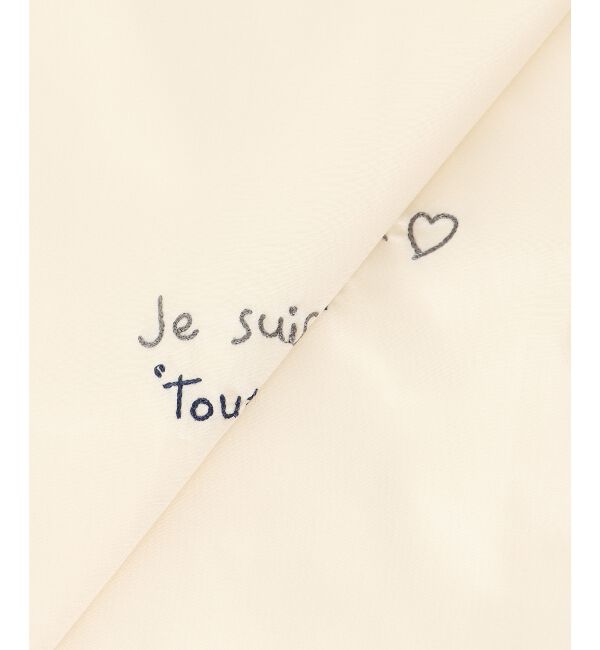 Je suis
"Tous